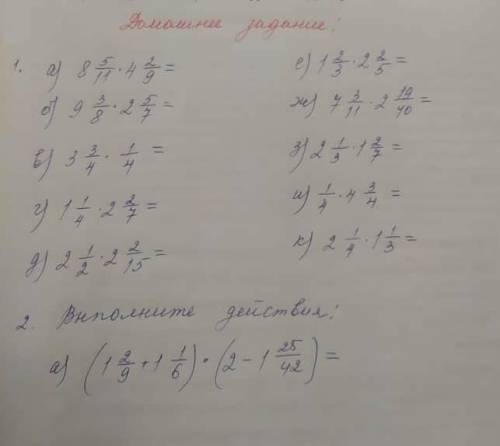 Домашнее задание!
1. а) 8 5/11 · 4 2/9 =
б) 9 3/8 · 2 5/7 =
в) 3 3/4 · 1/4 =
г) 1 1/4 · 2 2/7 =
д) 2 1/2 · 2 2/15 =
е) 1 2/3 · 2 2/5 =
ж) 7 3/11 · 2 19/40 =
з) 2 1/3 · 1 2/7 =
и) 1/4 · 4 3/4 =
к) 2 1/4 · 1 1/3 =
2. Выполните действия:
а) (1 2/9 + 1 1/6) · (2 - 1 25/42) =